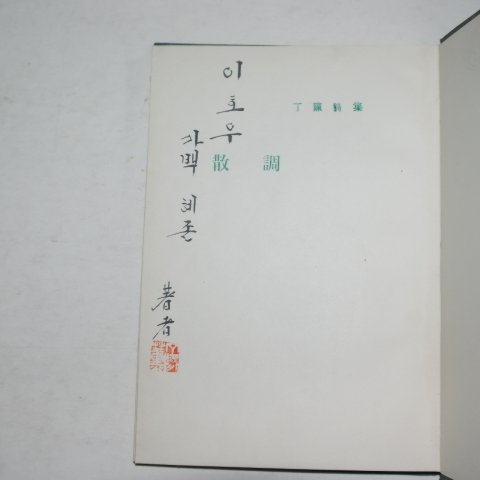 丁薰詩集
散調
이호우
사백 혜존
著者